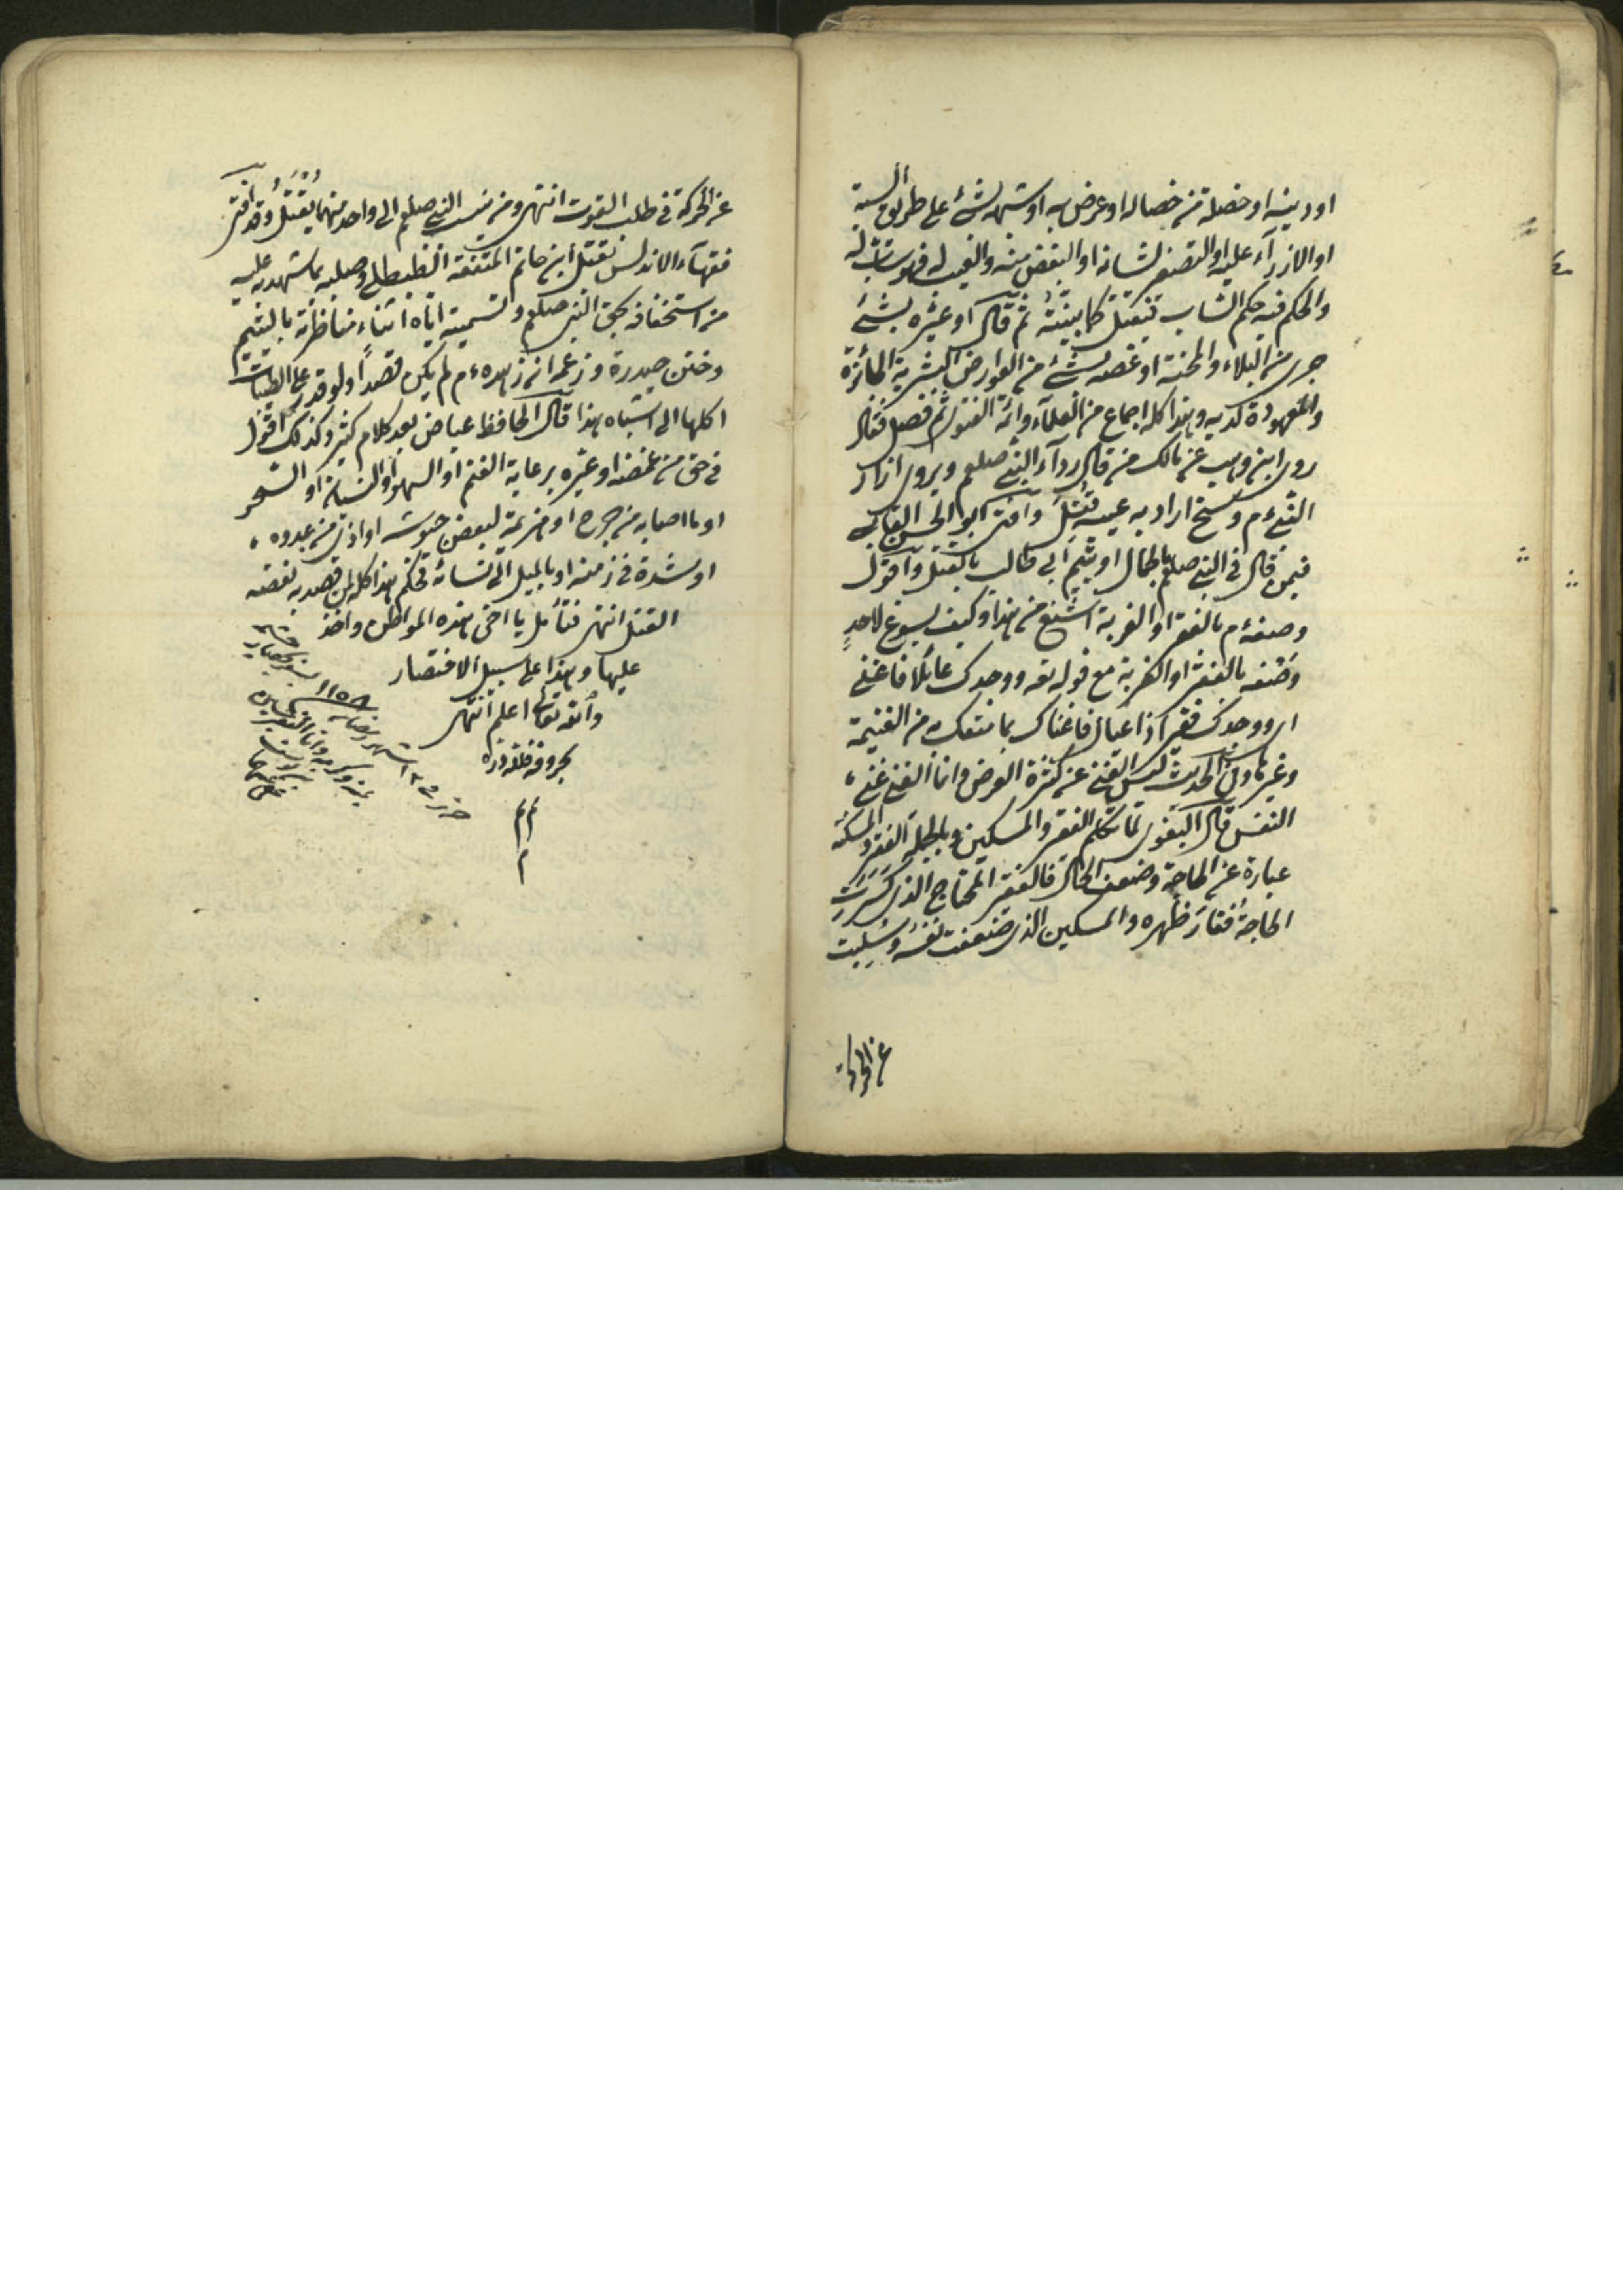 او دينه او خصلة من خصاله او عرض به او شبهه بشئ على طريق السبة
او الازرآء عليه او التصغير لشانه او البغض منه والعيب له فهو سابّ له
والحكم فيه حكم السّاب فيقتل كما بينته ثم قال او عيّره بشئ
جرى من البلاء والمحنة او غمصه بشئ من العوارض البشرية الجائزة
والمعهودة لديه وهذا كله اجماع من العلمآء وائمة الفتوى ثم فصل فقال
روى ابن وهب عن مالك من قال ردآء النبي صلعم ويروى ازار
النبي ءم وسخ اراد به عيبه قُتِلَ وافتى ابو الحسن القابسي
فيمن قال في النبي صلعم الجمال او يتيم ابي طالب بالقتل واقول
وصفه ءم بالفقر او الغربة اشنع من هذا وكيف يسوغ لاحدٍ
وصفه بالفقر او الغربة مع قوله تعه ووجدك عائلا فاغنى
اى ووجدك فقيرا ذا عيال فاغناك بما متعك به من الغنيمة
وغيرها وفى الحديث ليس الغنى عن كثرة العرض وانما الغنى غنى
النفس قال البغوى لما تكلم الفقر والمسكين وبالجملة الفقر والمسكنة
عبارة عن الحاجة وضعف الحال فالفقير المحتاج الذى كسرت
الحاجةُ فقارَ ظهره والمسكين الذى ضعفت نفسُه وسُلبت
عن الحركة
عن الحركة فى طلب القوت انتهى ومن ينسب النبى صلعم الى واحد منهما يُقتل وقد افتى
فقهآء الاندلس بقتل ابن حاتم المتفقه الطليطلى وصلبه بما شهد به عليه
من استخفافه بحق النبى صلعم وتسميته اياه اثناء مناظرته باليتيم
وختن حيدرة وزعمه ان زهده ءم لم يكن قصداً ولو قدر على الطيبات
اكلها الى اشباه هذا قال الحافظ عياض بعد كلام كثير وكذلك اقول
فى حق من غمصه او عيّره برعاية الغنم او السهو او النسيان او السحر
او ما اصابه من جرح او هزيمة لبعض جيوشه او اذى من عدوه
او شدة فى زمنه او بالميل الى نسائه فحكم هذا كله لمن قصد به نقصه
القتل انتهى فتأمل يا اخى هذه المواطن واحذر
عليها وهذا على سبيل الاختصار
والله تعالى اعلم انتهى
بحروفه فلله دره
م م
م
١١٥٨